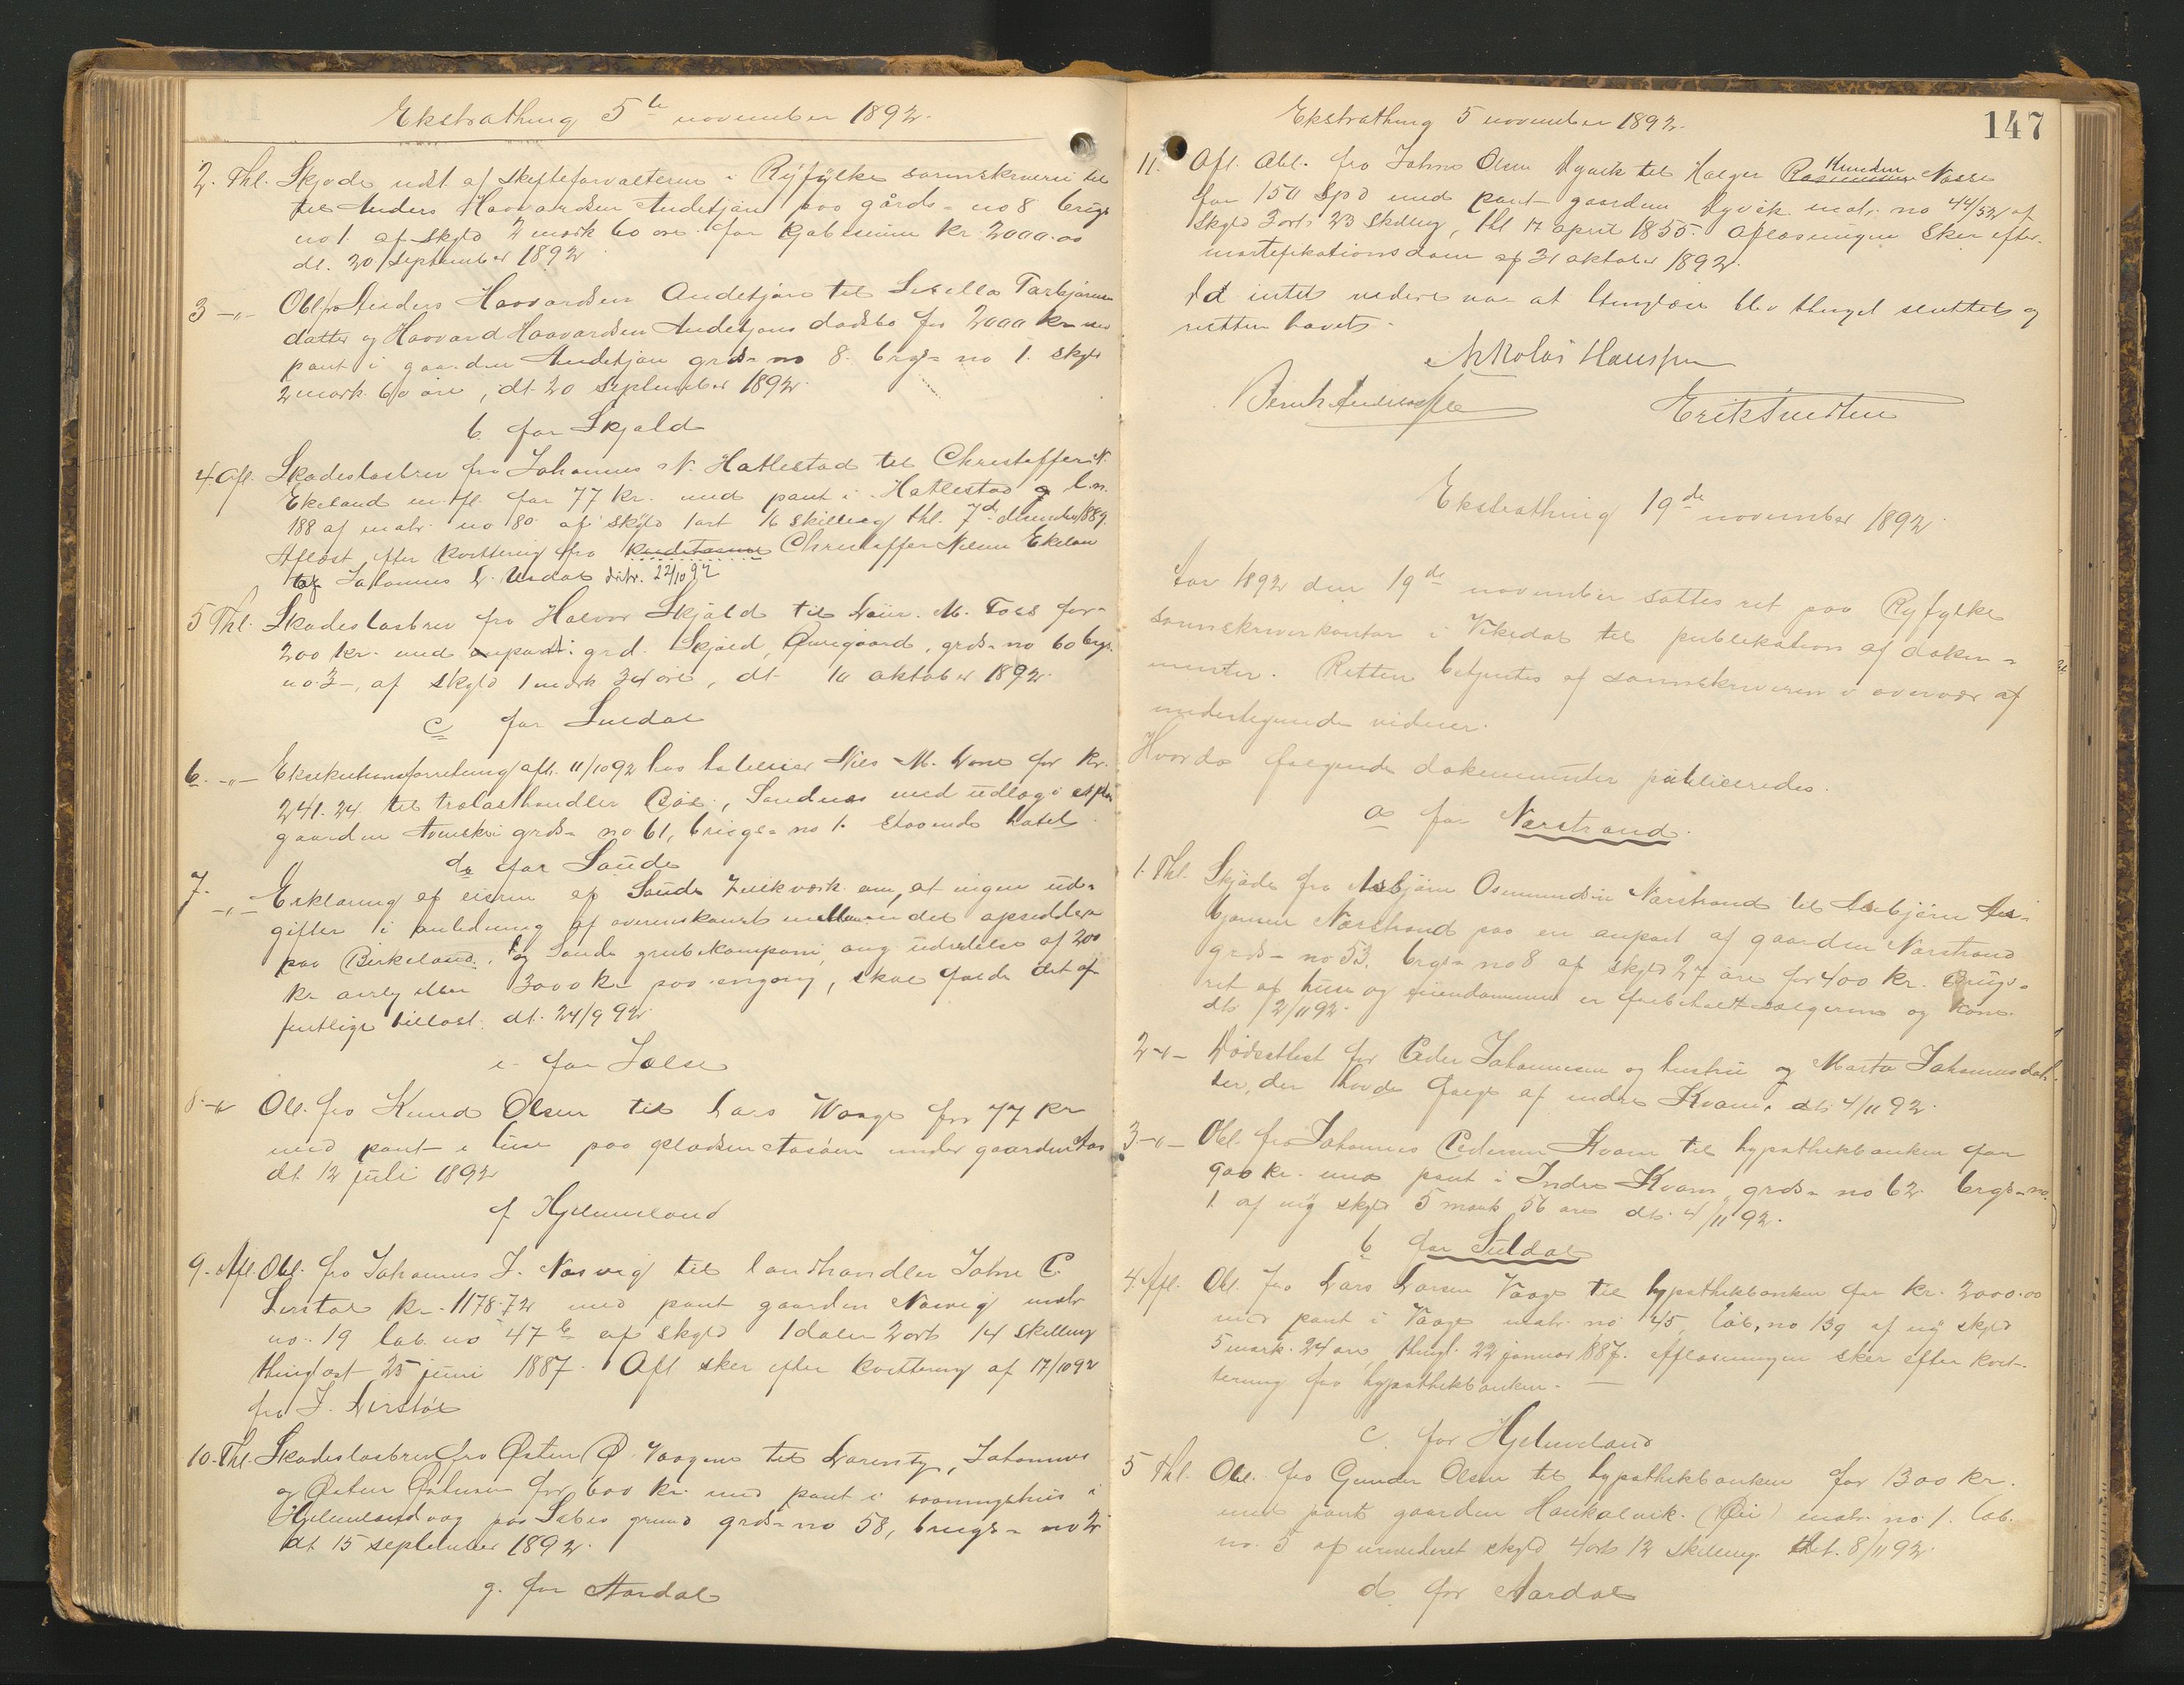 Ekstrathing 5te november 1892.
2. Thl. Skjøde udst. af skifteforvalteren i Ryfylke sorenskriveri til
til Anders Haavardsen Andetjøn paa gårds-no 8 brugs
no 1. af skyld 2 mark 60 øre for kjøbesum kr. 2000.00
dt. 20 september 1892
3 -"- Obl. fra Anders Haavardsen Andetjøn til Torbjørns
datter og Haavard Haavardsen Andetjøns dødsbo for 2000 kr. med
pant i gaarden Andetjøn grds-no 8. brgs-no 1. skyld
2 mark 60 øre, dt. 20 september 1892.
b. for Skjold
4 Afl. Skadesløsbrev fra Johannes N. Hatlestad til Christoffer N.
Ekeland m. fl. for 77 kr. med pant i Hatlestad l.n.
188 af matr. no 80 af skyld 1 ort 16 skilling thl. 7de december 1889.
Aflæst efter kvittering fra Christoffer Nilsen Ekeland
Johannes 22/10 92
5 Thl. Skadesløsbrev fra Halvor Skjold til M. Toes for
200 kr. med anpart i grd. Skjold, Øvregaard, grds-no 60 brgs.
no. 3, af skyld 1 mark 34 øre, dt. 10 oktober 1892.
c for Suldal
6. -"- Eksekutionsforretning afh. 11/10 92 hos hoteleier Nils M. for kr.
241.24 til trælasthandler Bøe, Sandnes med udlæg i et paa
gaarden grds-no 61, brugs-no 1. staaende hotel.
d. for Saude
7. -"- Erklæring af eieren af Saude Zinkværk om, at ingen ud-
gifter i anledning af overenskomst mellem det opsidderen
paa Birkeland og Saude grubekompani, ang. udredelse af 200
kr. aarlig eller 3000 kr. paa engang, skal falde det of-
fentlige tillast. dt. 24/9 92.
e. for Jelse
8. -"- Obl. fra Knud Olsen til Lars Waage for 77 kr
med pant i hus paa pladsen under gaarden
dt. 12 juli 1892
f. Hjelmeland
9. Afl. Obl. fra Johannes J. Næsvig til landhandler John C.
kr. 1178.72 med pant gaarden Næsvig matr
no. 19 løb. no 47 b af skyld 1 daler 2 ort 14 skilling
thinglæst 25 juni 1887. Afl. sker efter kvittering af 17/10 92
fra J.
10. Thl. Skadesløsbrev fra Østen Ø. Vaagene til Johannes
og Østen for 600 kr. med pant i vaaningshus i
Hjelmelandsvaag paa grund grds-no 58, brugs-no 2
dt 15 september 1892.
g. for Aardal
Ekstrathing 5 november 1892.
147
11. Afl. Obl. fra Johns Olsen Nyvik til Holger Knudsen
for 150 Spd med pant gaarden Nyvik matr. no 44/52 af
skyld 3 ort 23 skilling, thl 17 april 1855. Aflæsningen sker efter
mortifikationsdom af 31 oktober 1892.
Da intet videre var at thinglæse blev thinget sluttet og
retten hævet.
Nikolai Hanssen
Erik Knudsen
Ekstrathing 19de november 1892.
Aar 1892 den 19de november sattes ret paa Ryfylke
sorenskriverkontor i Vikedal til publikation af doku-
menter. Retten betjentes af sorenskriveren i overvær af
undertegnede vidner.
Hvorda følgende dokumenter publiceredes.
a for Nærstrand.
1. Thl. Skjøde fra Asbjørn Osmundsen Nærstrand til Asbjørn As-
bjørnsen Nærstrand paa en anpart af gaarden Nærstrand
grds-no 53. brgs-no 8 af skyld 27 øre for 400 kr. Brugs-
ret af huse og eiendommen er forbeholdt sælgerne og kone.
dt. 12/11 92.
2 -"- Dødsattest for Peder Johannesen og hustru og Marta Johannesdat-
ter, der havde fæige af indre Kvam. dt. 4/11 92.
3 -"- Obl. fra Johannes Pedersen Kvam til hypothekbanken for
900 kr. med pant i Indre Kvam, grds-no 62. brgs-no.
1. af ny skyld 5 mark 56 øre dt. 4/11 92.
b for Suldal
4. Afl. Obl. fra Lars Larsen Vaage til hypothekbanken for kr. 2000.00
med pant i Vaage matr. no. 45, løb. no 139 af ny skyld
5 mark 24 øre, thingl. 22 januar 1887. Aflæsningen sker efter kvit-
tering fra hypothekbanken.
c. for Hjelmeland
5 Thl. Obl. fra Gunder Olsen til hypothekbanken for 1300 kr.
med pant gaarden Haukalivik. (Øie) matr. no. 1. løb.
no. 5 af urevideret skyld 4 ort 12 skilling dt. 8/11 92.
d. for Aardal